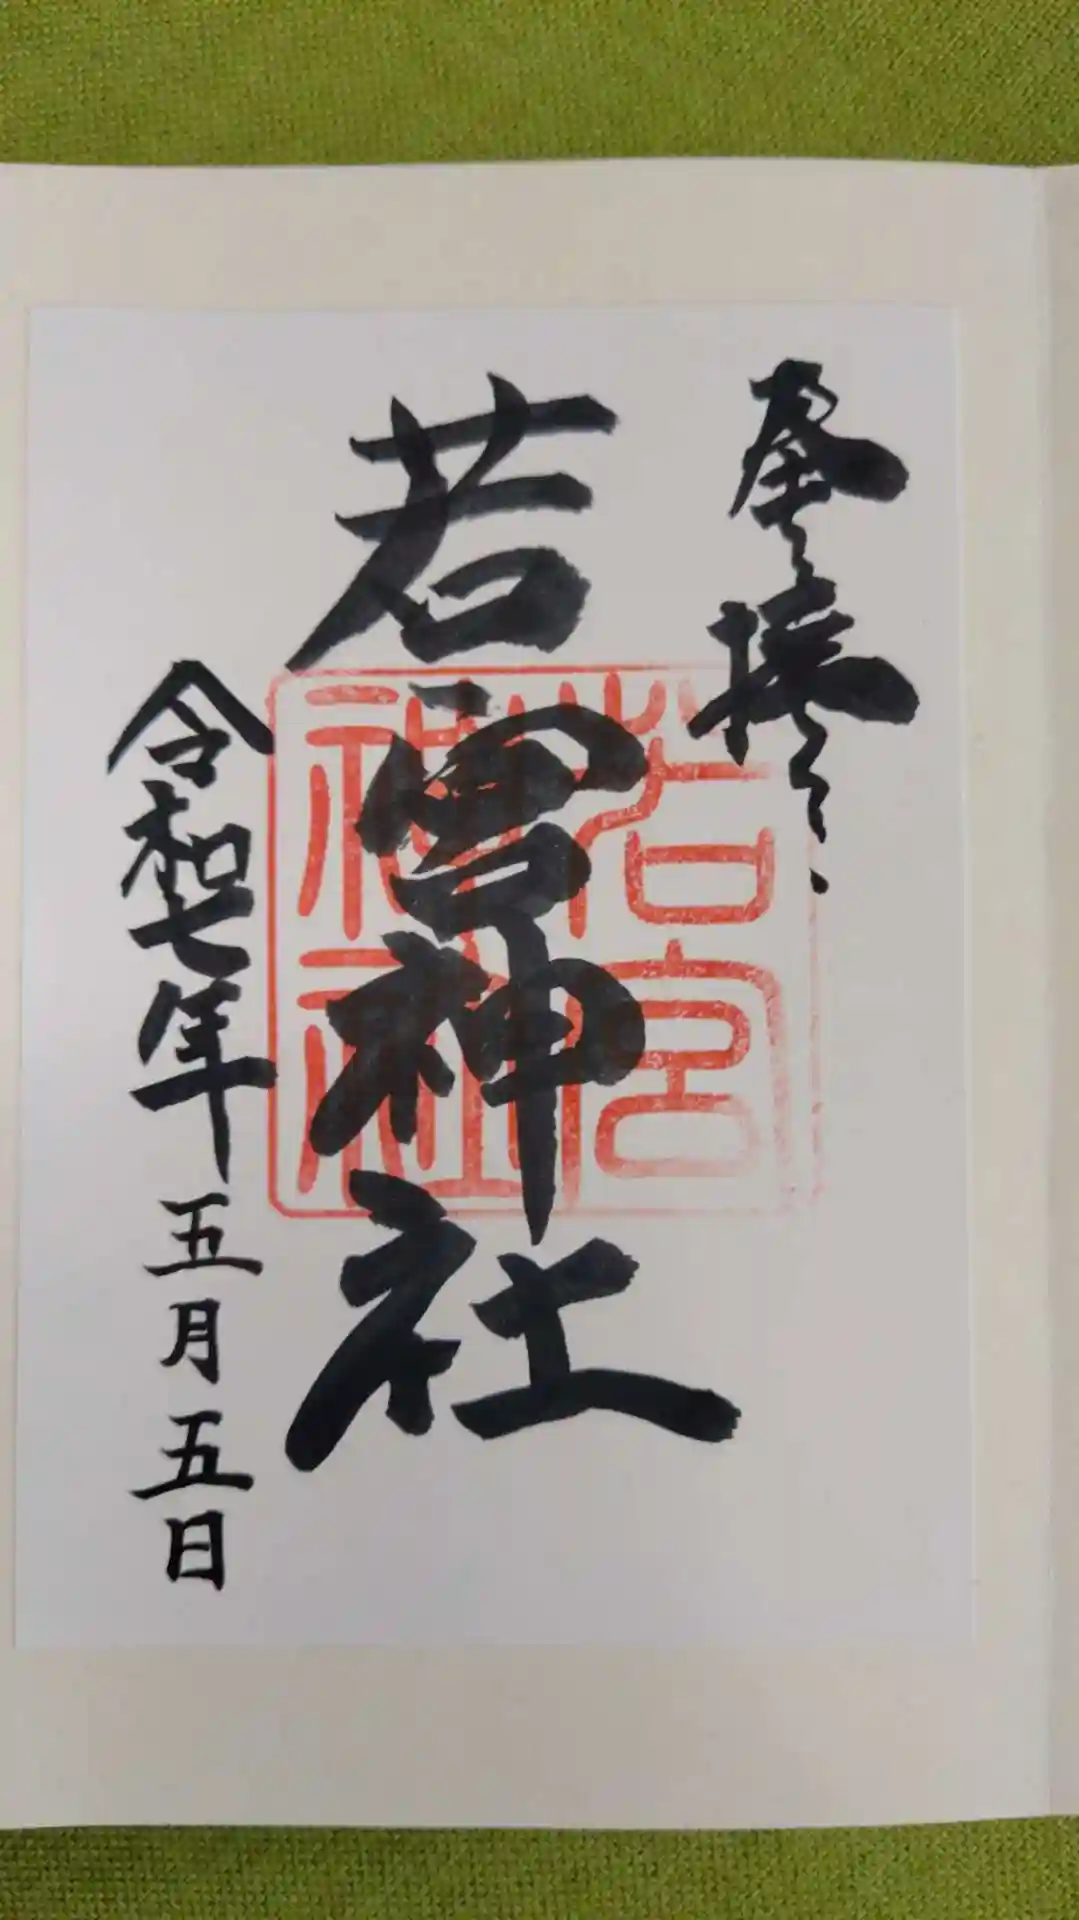 奉拝
若宮神社
若宮
神社
令和七年五月五日